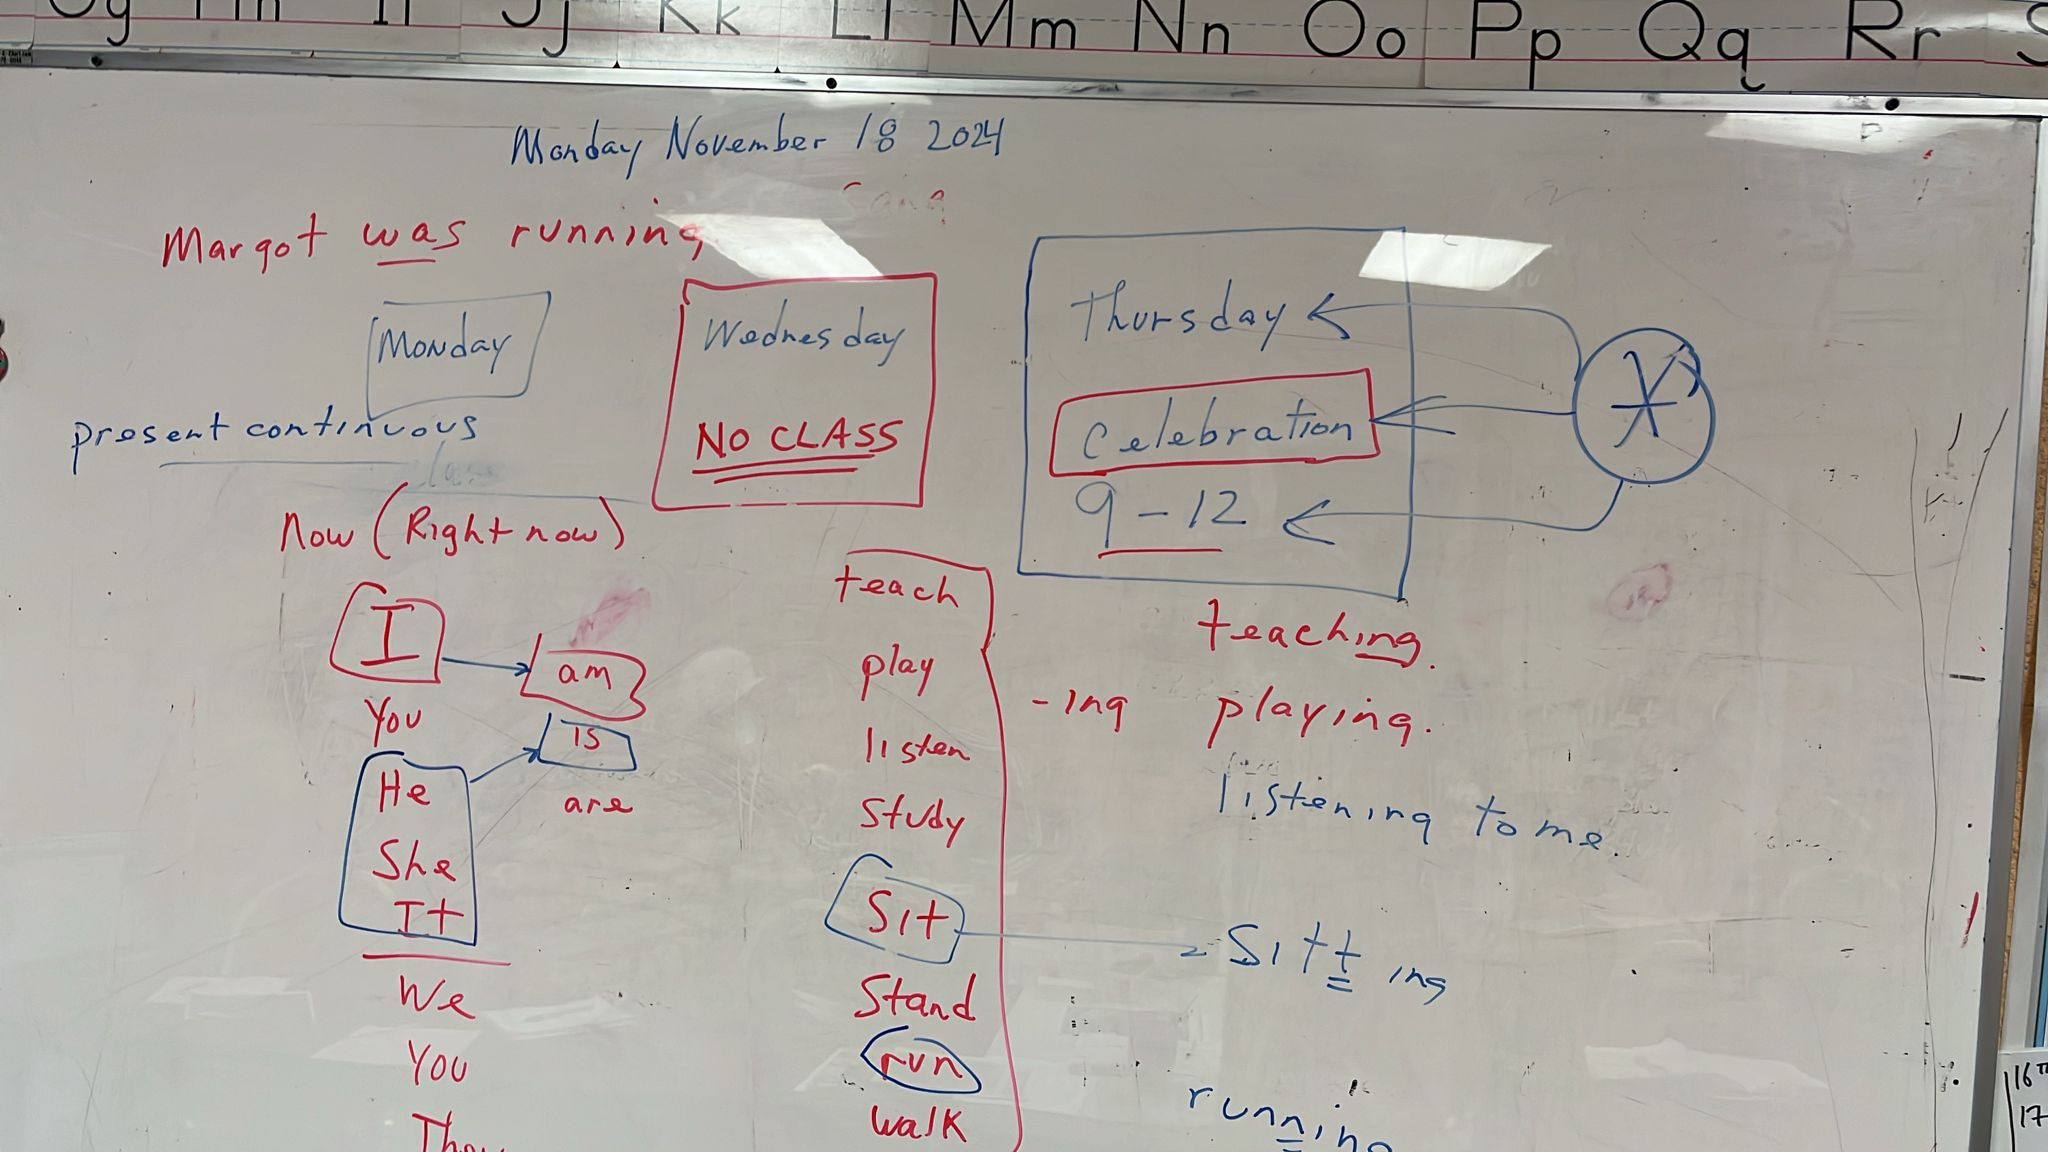 Jj Kk Ll Mm Nn Oo Pp Qq Rr
Monday November 18 2024
Sang
Margot was running
Monday
Wednesday
NO CLASS
Thursday
Celebration
9 - 12
present continuous
Now (Right now)
I
am
You
is
He
are
She
It
We
You
They
teach
play
listen
study
Sit
Stand
run
walk
-ing
teaching.
playing.
listening to me.
Sitt ing
running
16TH
17